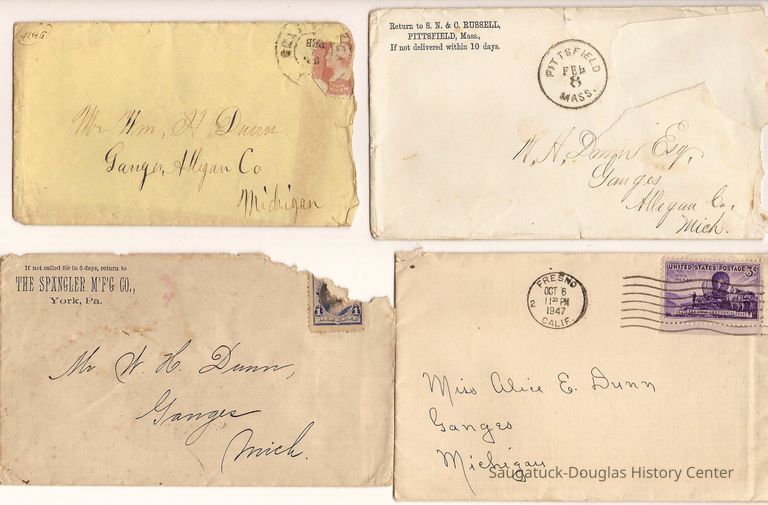 Mr Wm, H Dunn
Ganges, Allegan Co
Michigan
Return to S. N. & C. RUSSELL,
PITTSFIELD, Mass.,
If not delivered within 10 days.
PITTSFIELD
FEB
8
MASS.
W. H. Dunn Esq,
Ganges
Allegan Co.
Mich.
If not called for in 5 days, return to
THE SPANGLER M'F'G CO.,
York, Pa.
1 1
Mr. W. H. Dunn,
Ganges
Mich.
FRESNO
OCT 6
11 30 PM
1947
CALIF.
2
UNITED STATES POSTAGE 3¢
Miss Alice E. Dunn
Ganges
Michigan
Saugatuck-Douglas History Center